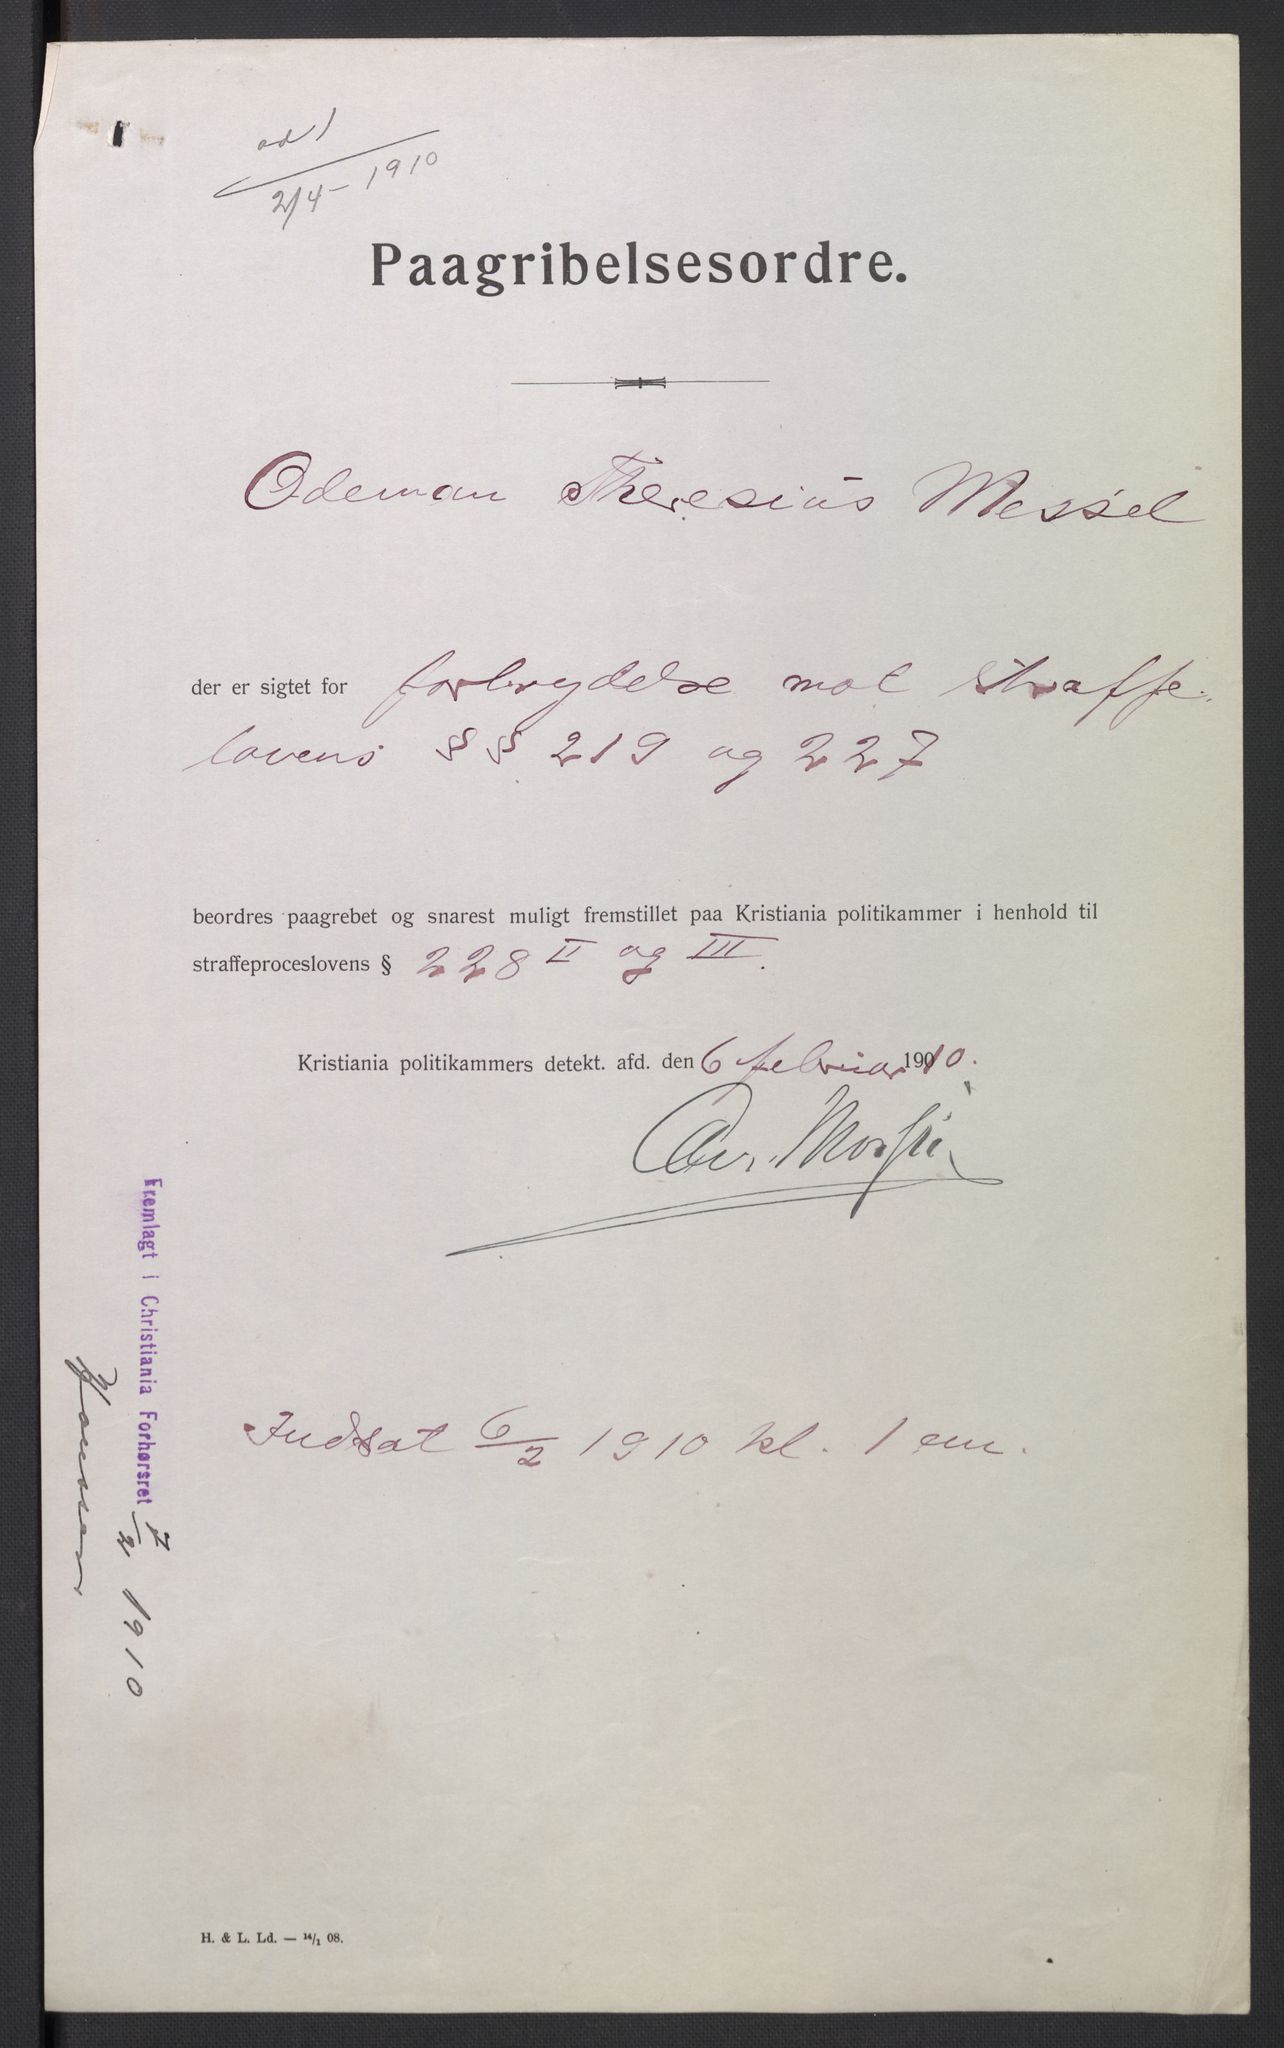 ad 1
2/4 - 1910
Paagribelsesordre.
Odeman Theresius Messel
der er sigtet for forbrydelse mot straffe-
lovens § § 219 og 227
beordres paagrebet og snarest muligt fremstillet paa Kristiania politikammer i henhold til
straffeproceslovens § 228 II og III.
Kristiania politikammers detekt. afd. den 6 februar 1910.
Indsat 6/2 1910 kl. 1 em.
Fremlagt i Christiania Forhørsret 7/2 1910
H. & L. Ld. — 14/1 08.